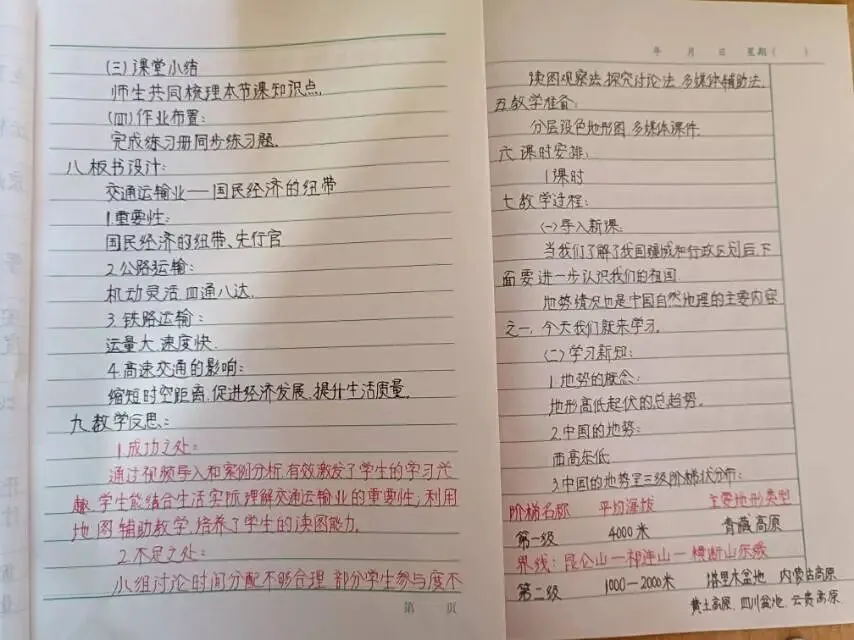 (三)课堂小结
师生共同梳理本节课知识点.
(四)作业布置:
完成练习册同步练习题.
八.板书设计:
交通运输业——国民经济的纽带
1.重要性:
国民经济的纽带、先行官
2.公路运输:
机动灵活.四通八达.
3.铁路运输:
运量大.速度快.
4.高速交通的影响:
缩短时空距离.促进经济发展.提升生活质量.
九.教学反思:
1.成功之处:
通过视频导入和案例分析,有效激发了学生的学习兴
趣.学生能结合生活实际理解交通运输业的重要性,利用
地图辅助教学,培养了学生的读图能力.
2.不足之处:
小组讨论时间分配不够合理 部分学生参与度不
第 页
年 月 日 星期( )
读图观察法.探究讨论法.多媒体辅助法.
五.教学准备:
分层设色地形图 多媒体课件.
六.课时安排:
1课时
七.教学过程:
(一)导入新课:
当我们了解了我国疆域和行政区划后,下
面要进一步认识我们的祖国.
地势情况也是中国自然地理的主要内容
之一,今天我们就来学习.
(二)学习新知:
1.地势的概念:
地形高低起伏的总趋势.
2.中国的地势:
西高东低.
3.中国的地势呈三级阶梯状分布:
阶梯名称 平均海拔 主要地形类型
第一级 4000米 青藏高原
界线:昆仑山—祁连山—横断山东缘
第二级 1000—2000米 塔里木盆地 内蒙古高原
黄土高原.四川盆地.云贵高原.